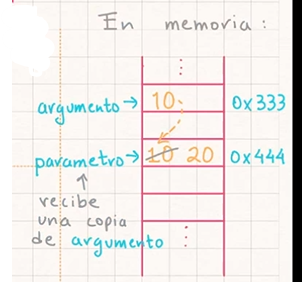 En memoria:
⋮
argumento → 10 0x333
parametro → 10 20 0x444
↑
recibe
una copia
de argumento
⋮